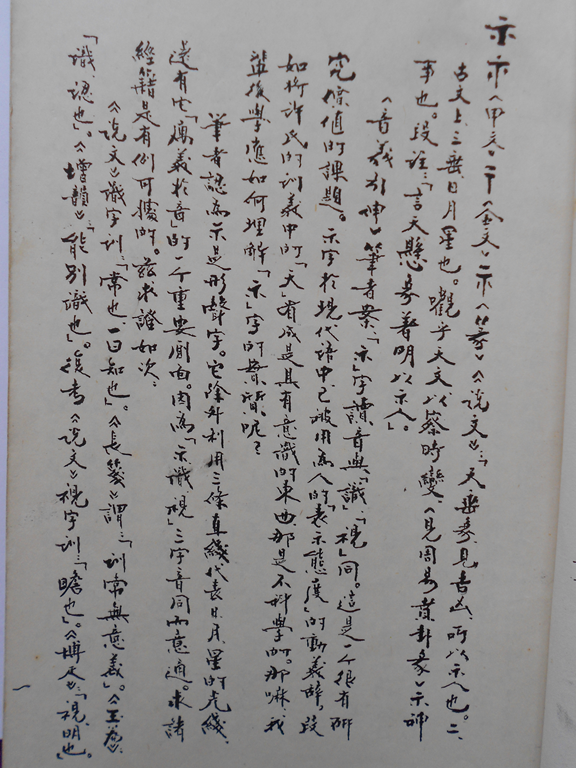 示 示《甲文》〒《金文》示《篆》《說文》:「天垂象,見吉凶,所以示人也。二、
古文上。三垂,日月星也。觀乎天文以察時變。《見周易賁卦彖》示神
事也。段注:「言天懸象著明以示人」。
《音義引伸》筆者案:「示」字讀音與「識」「視」同。這是一個很有研
究價值的課題。示字於現代語中已被用為人的「表示態度」的動義辭,設
如將許氏的訓義中的「天」看成是具有意識的東西,那是不科學的。那嘛,我
盤後學應如何理解「示」字的實質呢?
筆者認為示是形聲字。它除外利用三條直綫代表日、月、星的光綫、
還有它「寓義於音」的一個重要側面。因為「示識視」三字音同而意通。求諸
經籍是有例可據的。茲求證如次:
《說文》識字訓:「常也一曰知也」。《長箋》謂:「訓常無意義」。《玉篇》:
「識,認也」。《增韻》:「能別識也」。復考《說文》視字訓:「瞻也」。《博雅》:「視,明也」。
一